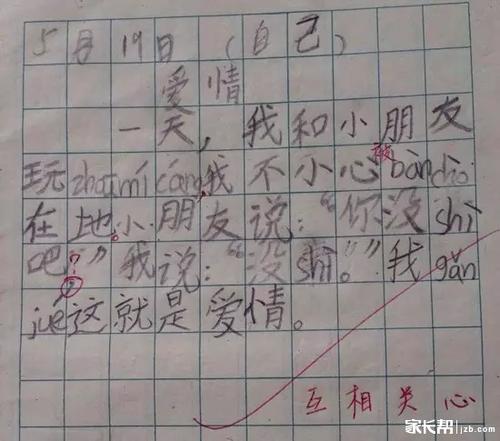 5月19日（自己）
爱情
一天，我和小朋友
玩zhaimí cáng，我不小心被bàn dǎo
在地。小朋友说：“你没shì
吧？”我说：“没shì。”我gǎn
jué这就是爱情。
互相关心
家长帮 jzb.com